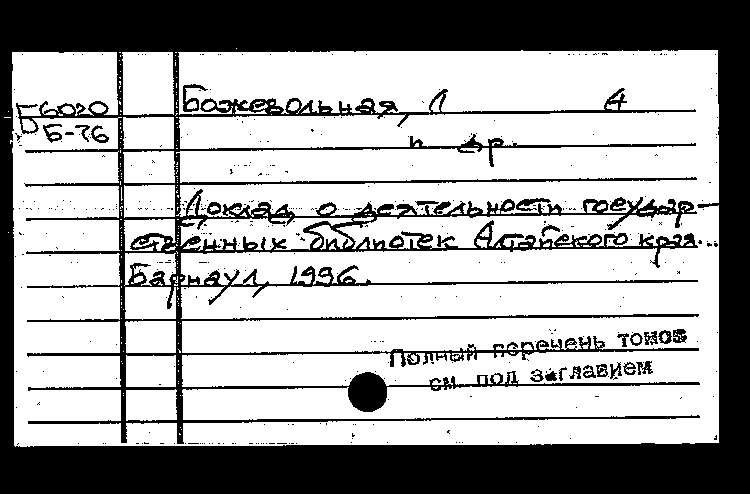 Б6020 Божевольная, Л А
Б-76
и др.
Доклад о деятельности государ-
ственных библиотек Алтайского края...
Барнаул, 1996.
Полный перечень томов
см. под заглавием